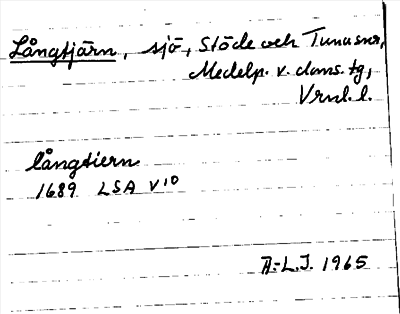 Långtjärn, sjö, Stöde och Tunasnr,
Medelp. v. doms. tg,
Vrnl. l.
långtiern
1689 LSA V10
A.-L.J. 1965